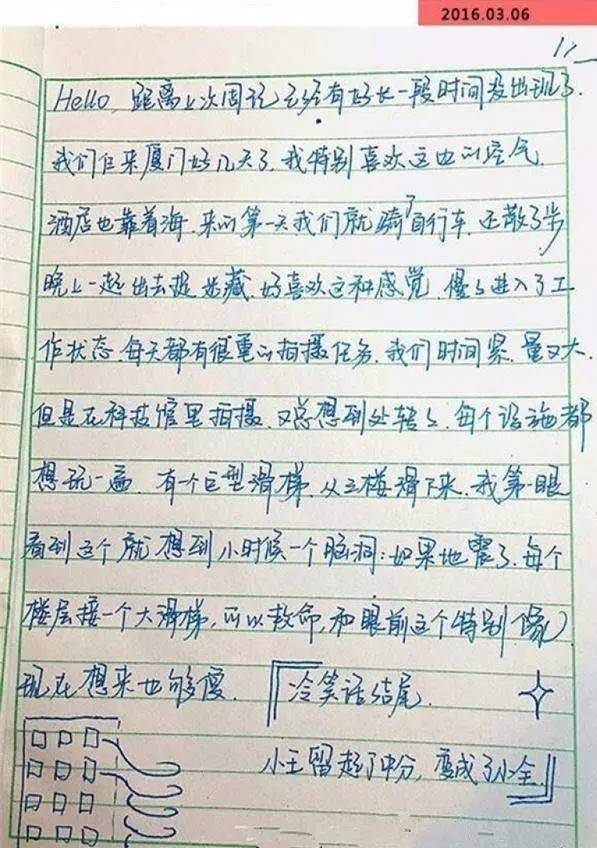 2016.03.06
Hello, 距离上次周记已经有好长一段时间没出现了.
我们住来厦门好几天了,我特别喜欢这边的空气
酒店也靠着海.来的第一天我们就骑了自行车.还散了步
晚上一起出去捉迷藏.好喜欢这种感觉.慢慢进入了工
作状态.每天都有很重的拍摄任务.我们时间紧.量又大.
但是在科技馆里拍摄.又总想到处转转.每个设施都
想玩一遍.有个巨型滑梯.从三楼滑下来.我第一眼
看到这个就想到小时候一个脑洞:如果地震了.每个
楼层接一个大滑梯,可以救命,和眼前这个特别像
现在想来也够傻.『冷笑话结尾.
小王留起了中分,变成了小全.』